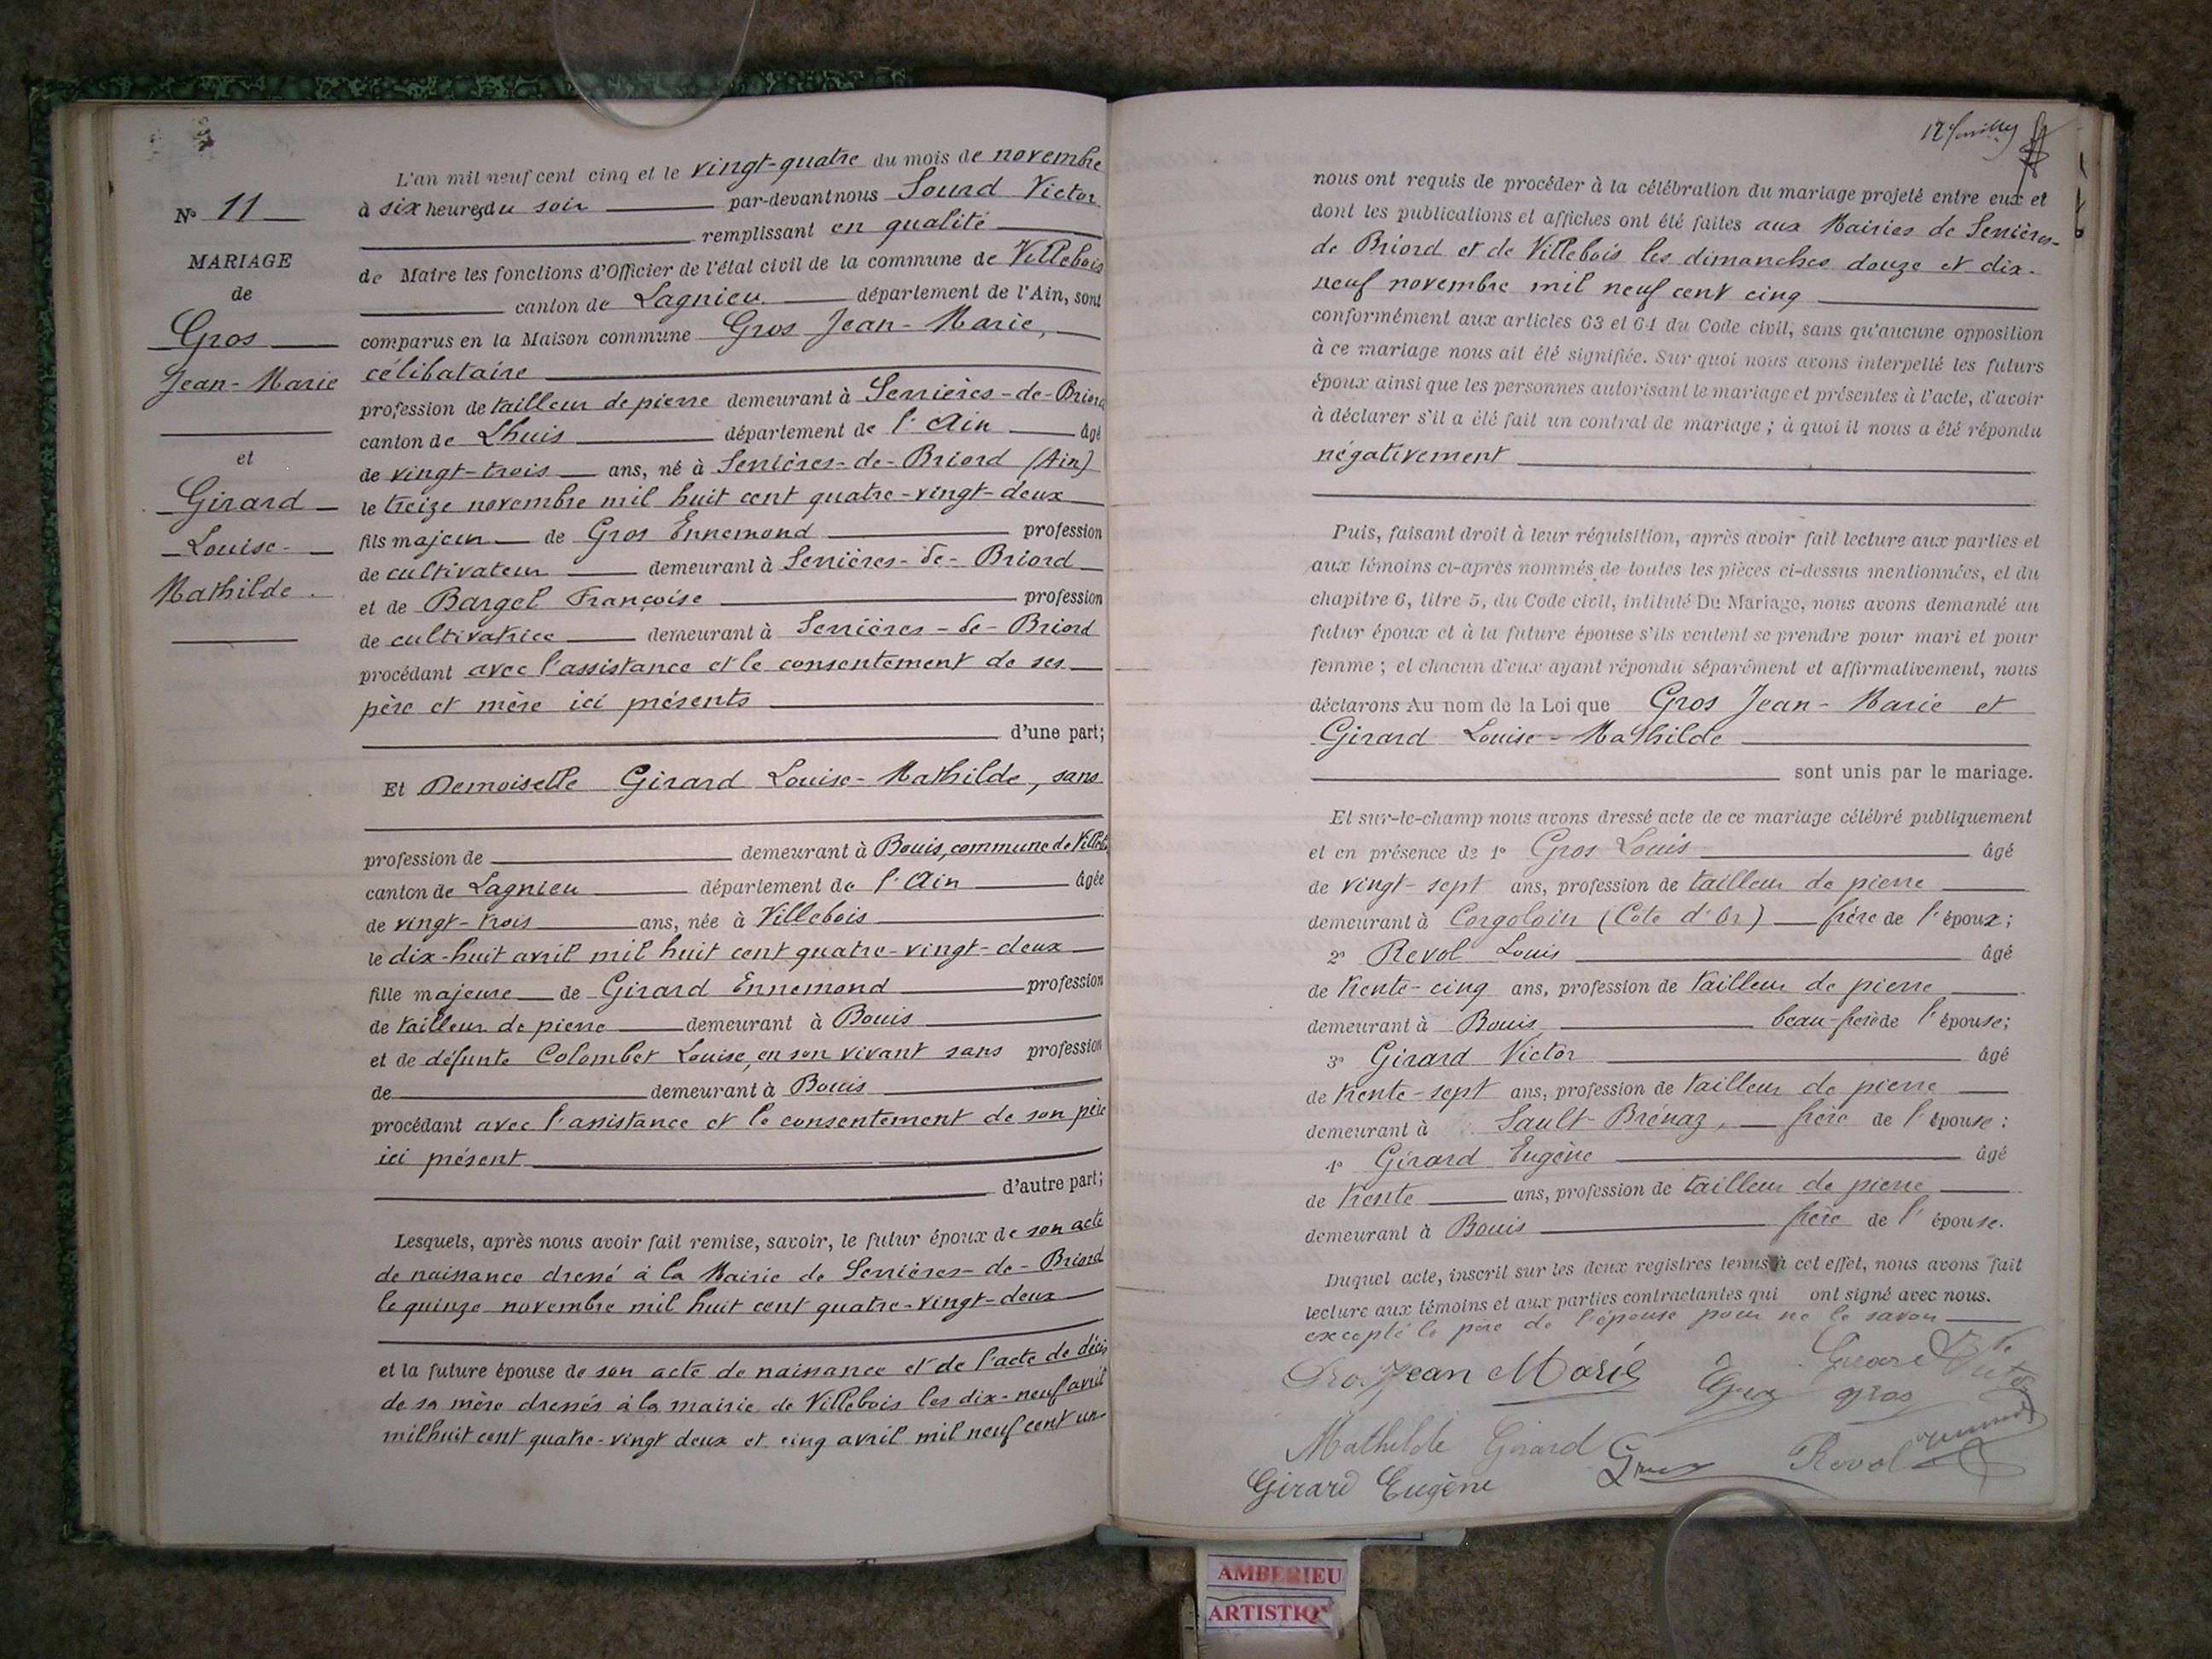 L'an mil neuf cent cinq et le vingt-quatre du mois de novembre
à six heures du soir par-devant nous Sourd Victor
remplissant en qualité
de Maire les fonctions d'Officier de l'état civil de la commune de Villebois
canton de Lagnieu département de l'Ain, sont
comparus en la Maison commune Gros Jean-Marie,
célibataire
profession de tailleur de pierre demeurant à Serrières-de-Briord
canton de Lhuis département de l'Ain âgé
de vingt-trois ans, né à Serrières-de-Briord (Ain)
le treize novembre mil huit cent quatre-vingt-deux
fils majeur de Gros Ennemond profession
de cultivateur demeurant à Serrières-de-Briord
et de Bargel Françoise profession
de cultivatrice demeurant à Serrières-de-Briord
procédant avec l'assistance et le consentement de ses
père et mère ici présents
d'une part;
Et Demoiselle Girard Louise-Mathilde, sans
profession de demeurant à Bouis, commune de Villebois
canton de Lagnieu département de l'Ain âgée
de vingt-trois ans, née à Villebois
le dix-huit avril mil huit cent quatre-vingt-deux
fille majeure de Girard Ennemond profession
de tailleur de pierre demeurant à Bouis
et de défunte Colombet Louise, en son vivant sans profession
de demeurant à Bouis
procédant avec l'assistance et le consentement de son père
ici présent
d'autre part;
Lesquels, après nous avoir fait remise, savoir, le futur époux de son acte
de naissance dressé à la Mairie de Serrières-de-Briord
le quinze novembre mil huit cent quatre-vingt-deux
et la future épouse de son acte de naissance et de l'acte de décès
de sa mère dressés à la mairie de Villebois les dix-neuf avril
mil huit cent quatre-vingt deux et cinq avril mil neuf cent un
N° 11
MARIAGE
de
Gros
Jean-Marie
et
Girard
Louise-
Mathilde.
nous ont requis de procéder à la célébration du mariage projeté entre eux et
dont les publications et affiches ont été faites aux Mairies de Serrières-
de Briord et de Villebois les dimanches douze et dix-
neuf novembre mil neuf cent cinq
conformément aux articles 63 et 64 du Code civil, sans qu'aucune opposition
à ce mariage nous ait été signifiée. Sur quoi nous avons interpellé les futurs
époux ainsi que les personnes autorisant le mariage et présentes à l'acte, d'avoir
à déclarer s'il a été fait un contrat de mariage; à quoi il nous a été répondu
négativement
Puis, faisant droit à leur réquisition, après avoir fait lecture aux parties et
aux témoins ci-après nommés de toutes les pièces ci-dessus mentionnées, et du
chapitre 6, titre 5, du Code civil, intitulé Du Mariage, nous avons demandé au
futur époux et à la future épouse s'ils veulent se prendre pour mari et pour
femme; et chacun d'eux ayant répondu séparément et affirmativement, nous
déclarons Au nom de la Loi que Gros Jean-Marie et
Girard Louise-Mathilde
sont unis par le mariage.
Et sur-le-champ nous avons dressé acte de ce mariage célébré publiquement
et en présence de 1° Gros Louis âgé
de vingt-sept ans, profession de tailleur de pierre
demeurant à Corgoloin (Côte d'Or) frère de l'époux;
2° Revol Louis âgé
de trente-cinq ans, profession de tailleur de pierre
demeurant à Bouis, beau-frère de l'épouse;
3° Girard Victor âgé
de trente-sept ans, profession de tailleur de pierre
demeurant à Sault-Brénaz, frère de l'épouse;
4° Girard Eugène âgé
de trente ans, profession de tailleur de pierre
demeurant à Bouis frère de l'épouse.
Duquel acte, inscrit sur les deux registres tenus à cet effet, nous avons fait
lecture aux témoins et aux parties contractantes qui ont signé avec nous.
excepté le père de l'épouse pour ne le savoir
Gros Jean Marie Gros gros Girard Victor
Mathilde Girard Revol
Girard Eugène
AMBERIEU
ARTISTIQ